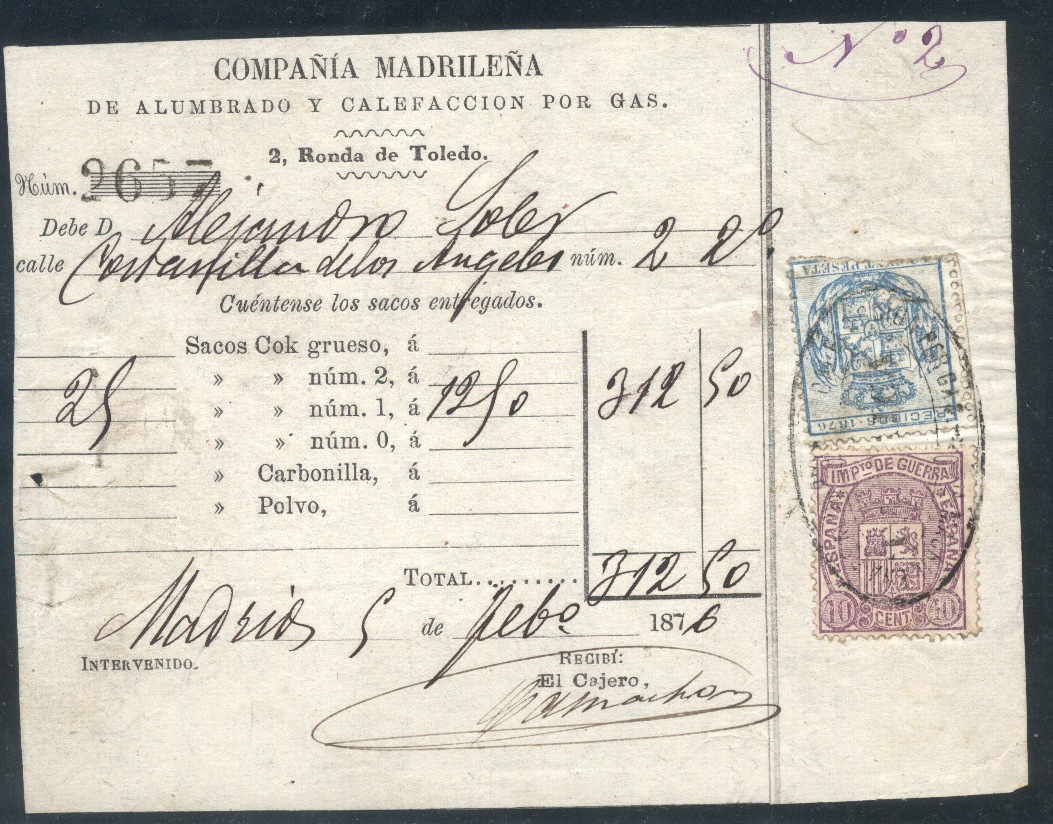 Nº 2
COMPAÑÍA MADRILEÑA
DE ALUMBRADO Y CALEFACCION POR GAS.
2, Ronda de Toledo.
Núm. 2657
Debe D. Alejandro Soler
calle Costanilla de los Angeles núm. 2 2º
Cuéntense los sacos entregados.
Sacos Cok grueso, á
» » núm. 2, á
25 » » núm. 1, á 12 50 312 50
» » núm. 0, á
» Carbonilla, á
» Polvo, á
TOTAL.......... 312 50
Madrid 5 de Febº 1876
INTERVENIDO.
RECIBÍ:
El Cajero,
Camacho
PESETA
RECIBOS 1876
IMPTO DE GUERRA
ESPAÑA ESPAÑA
10 CENT 10